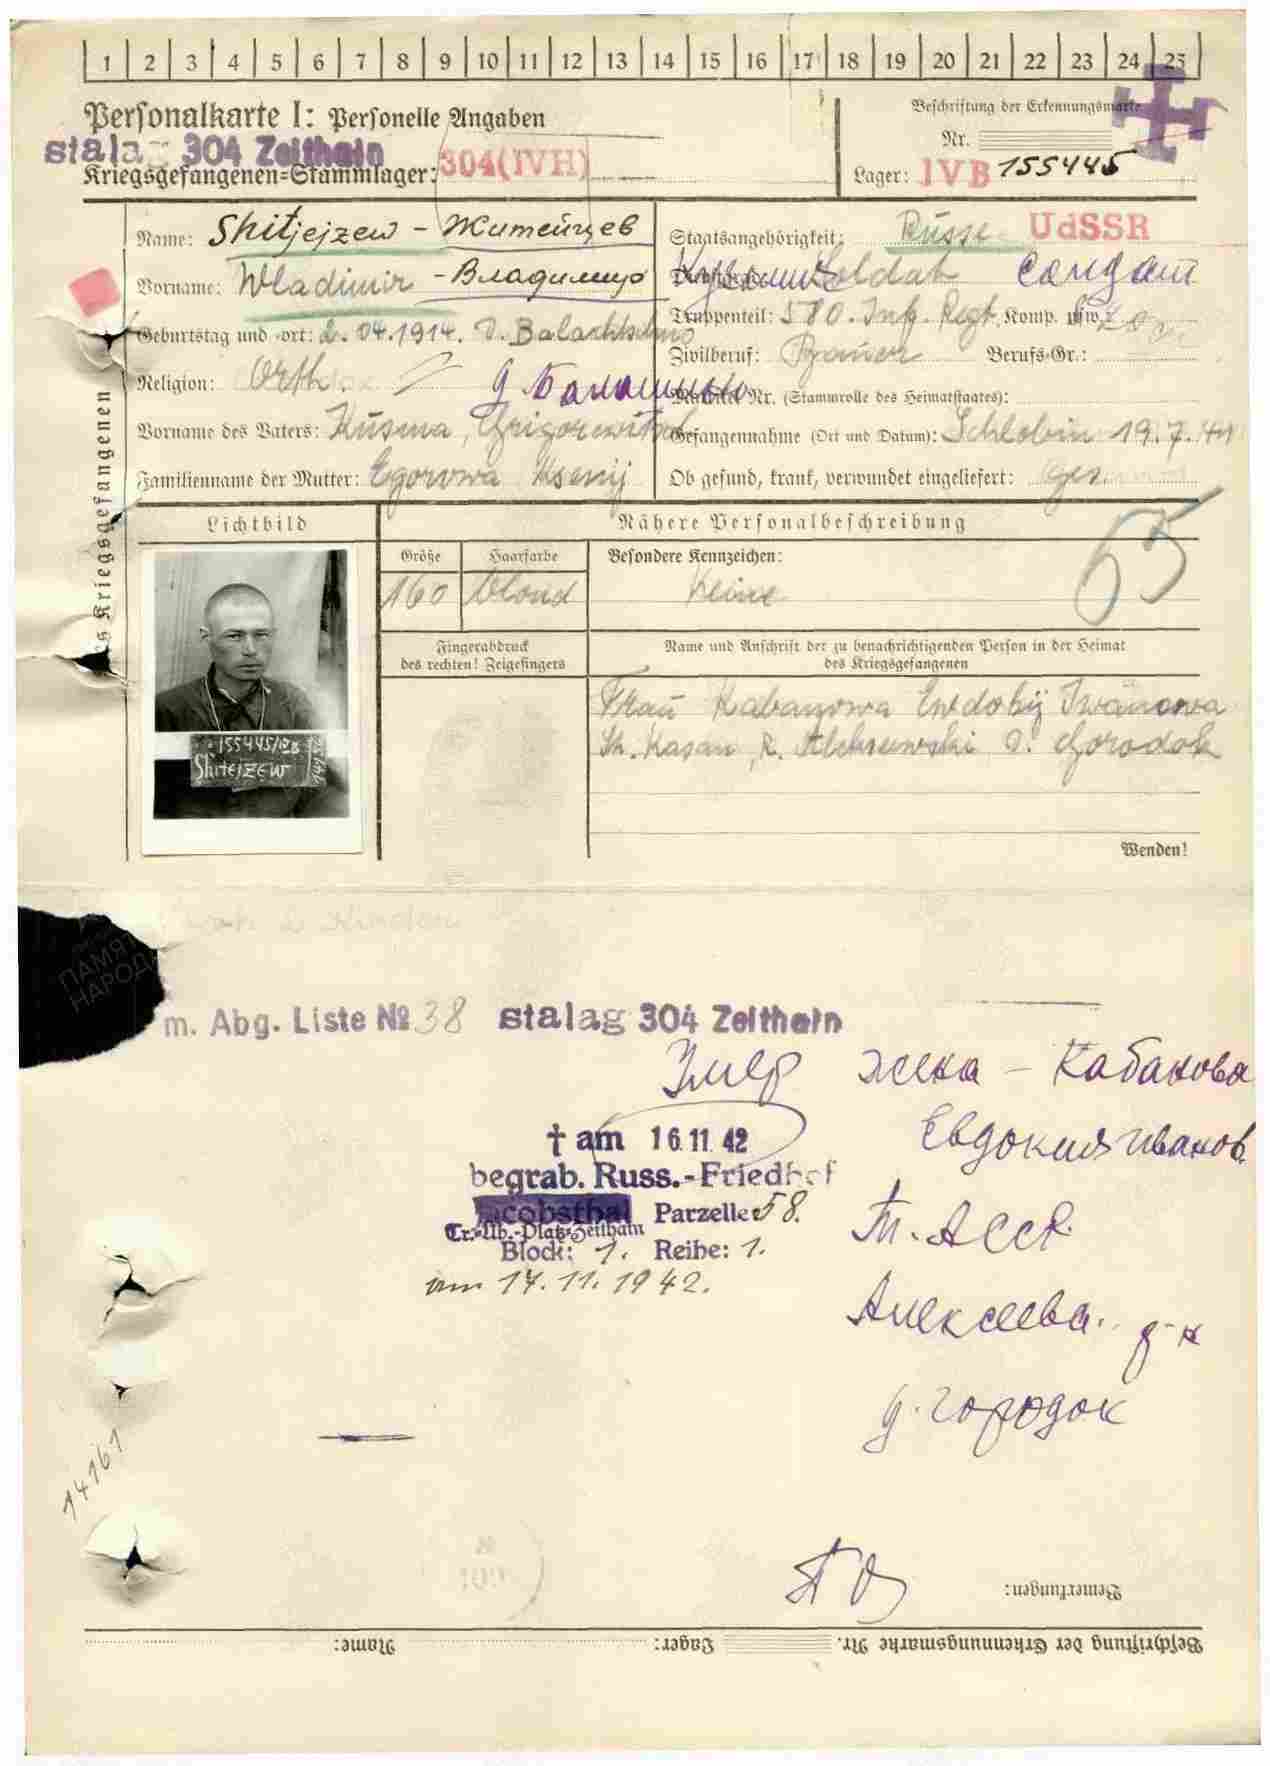 1 2 3 4 5 6 7 8 9 10 11 12 13 14 15 16 17 18 19 20 21 22 23 24 25
Personalkarte I: Personelle Angaben
Beschriftung der Erkennungsmarke
Nr.
stalag 304 Zeithain
Kriegsgefangenen-Stammlager: 304 (IVH)
Lager: IVB 155445
Name: Shitjejzew - Житейцев
Staatsangehörigkeit: Russe UdSSR
Vorname: Wladimir - Владимир
Кузьмич Soldat солдат
Geburtstag und -ort: 2.04.1914. D. Balachtschino
Truppenteil: 580. Inf. Regt. Komp. usw.
Zivilberuf: Bauer Berufs-Gr.:
Religion: Orth.
Matrikel Nr. (Stammrolle des Heimatstaates):
Vorname des Vaters: Kusma, Grigorewitsch
Gefangennahme (Ort und Datum): Schlobin 19.7.41
Familienname der Mutter: Egorowa Ksenij
Ob gesund, krank, verwundet eingeliefert:
des Kriegsgefangenen
Lichtbild
Nähere Personalbeschreibung
Größe
Haarfarbe
Besondere Kennzeichen:
160
blond
Keine
Fingerabdruck
des rechten! Zeigefingers
Name und Anschrift der zu benachrichtigenden Person in der Heimat
des Kriegsgefangenen
155445/IVB
Shitejzew
Frau Kabanowa Ewdokij Iwanowa
Kasan, R. D. Gorodok
Wenden!
ПАМЯТЬ
НАРОДА
m. Abg. Liste № 38 stalag 304 Zeithain
Умер жена - Кабанова
Евдокия Иванов.
† am 16.11.42
begrab. Russ.-Friedhof
Jacobsthal Parzelle: 58.
Tr.-Üb.-Platz-Zeithain
Block: 1. Reihe: 1.
am 17.11.1942.
Т. АССР.
Алексеева. р-н
д. Городок
14161
Bemerkungen:
Beschriftung der Erkennungsmarke Nr. Lager: Name: